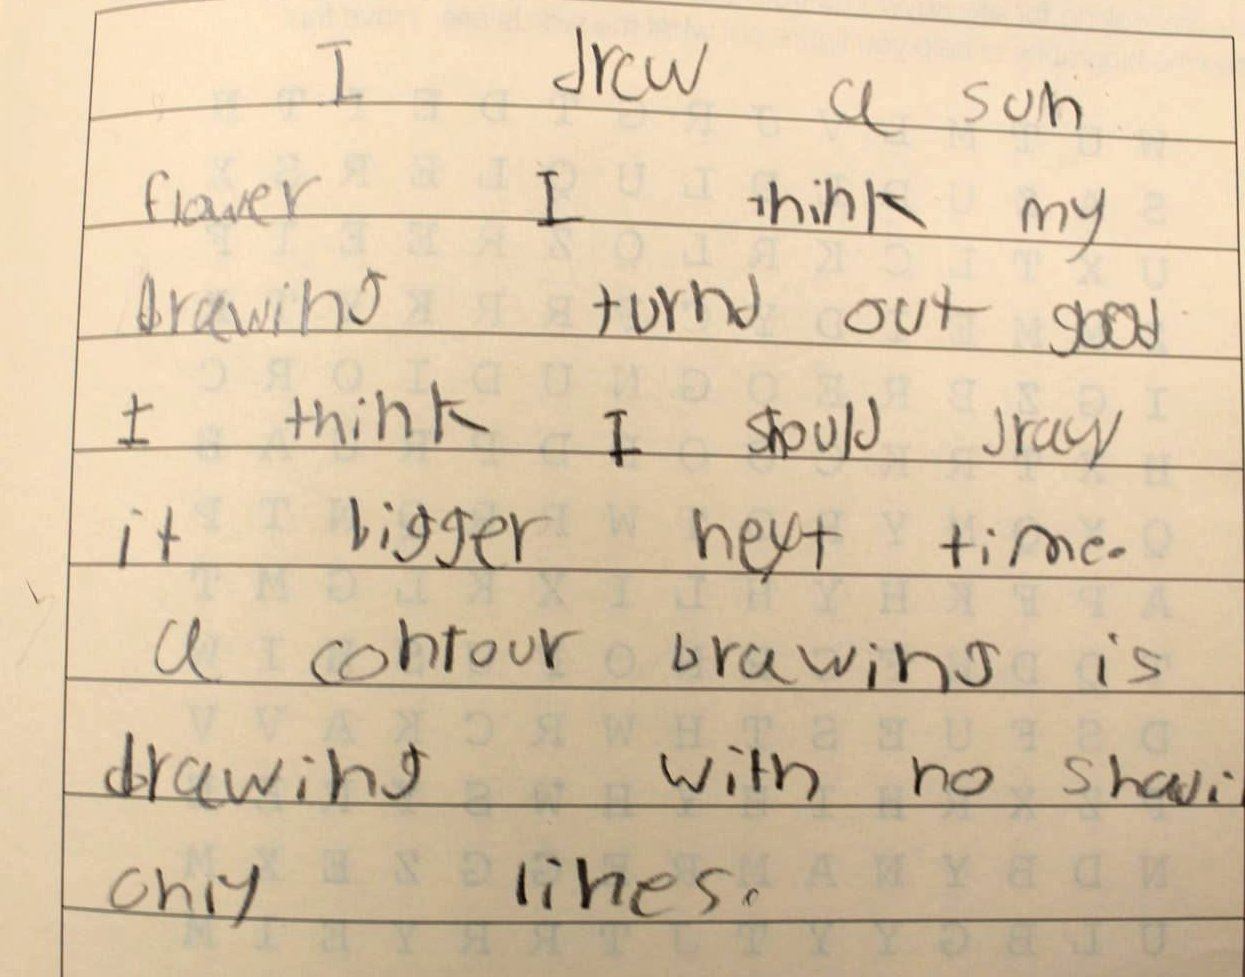 I drew a sun
flower I think my
drawing turnd out good
I think I should draw
it bigger next time.
a contour drawing is
drawing with no shadi
only lines.